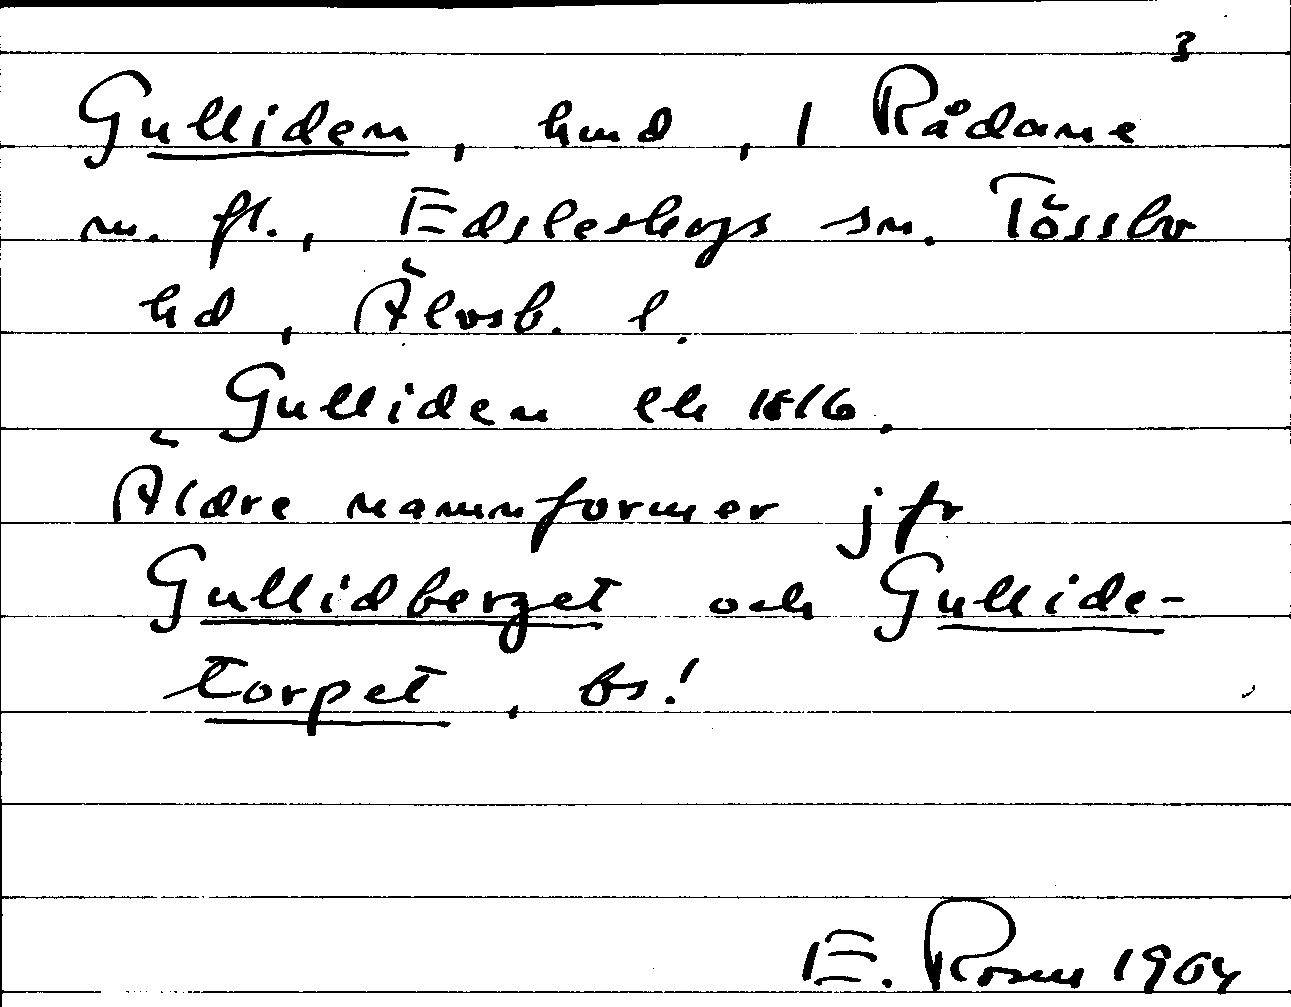 3
Gulliden, hmd, 1 Rådane
m. fl., Edsleskogs sn. Tössbo
hd, Älvsb. l.
Gulliden lh 1816.
Äldre namnformer jfr
Gullidberget och Gullide-
torpet, bs!
E. Rosus 1964